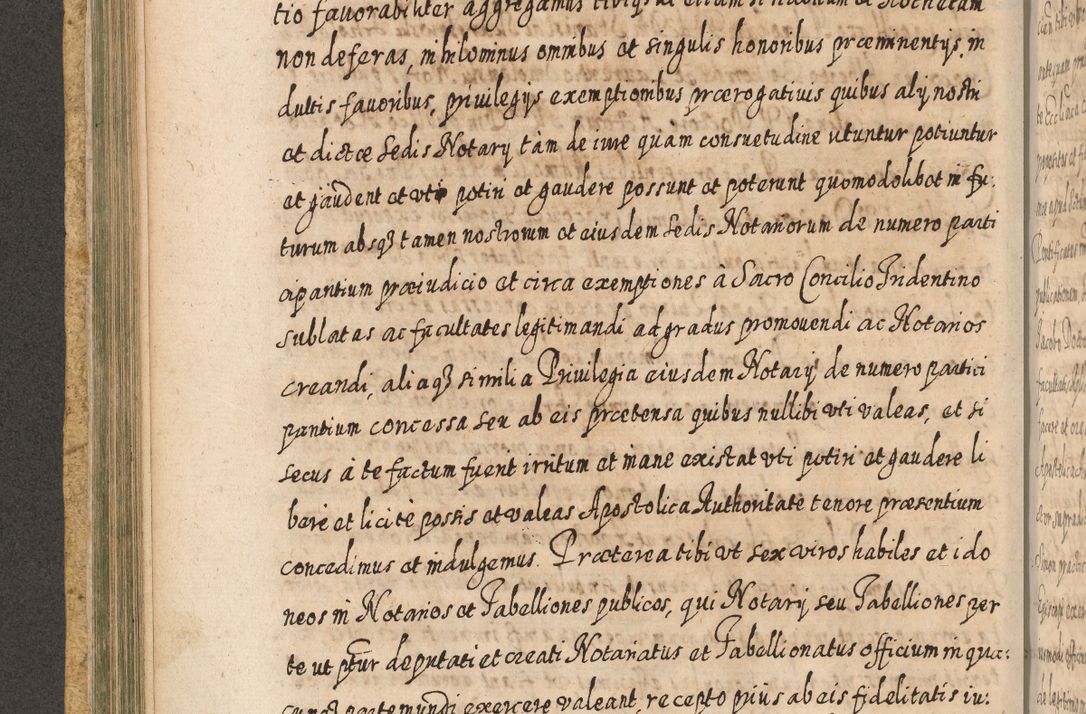 tio fauorabiliter aggregamus tibiq3 ut etiam si habitum et Rochetam
non deferas, nihilominus omnibus et singulis honoribus præeminentijs, in
dultis fauoribus, priuilegijs exemptionibus prærogatiuis quibus alij nostri
et dictæ sedis Notarij tàm de iure quam consuetudine utuntur potiuntur
et gaudent et uti potiri et gaudere possunt et poterunt quomodolibet in fu:
turum absq3 tamen nostrorum et eiusdem sedis Notariorum de numero parti
cipantium præiudicio et circa exemptiones à Sacro Concilio Tridentino
sublatas ac facultates legitimandi ad gradus promouendi ac Notarios
creandi, aliaq3 similia Priuilegia eiusdem Notarij de numero partici
pantium concessa seu ab eis prætensa quibus nullibi uti valeas, et si
secus à te factum fuerit irritum et inane existat uti potiri et gaudere li
berè et licitè possis et valeas Apostolica Authoritate tenore præsentium
concedimus et indulgemus. Præterea tibi ut sex viros habiles et ido
neos in Notarios et Tabelliones publicos, qui Notarij seu Tabelliones per
te ut ptur deputati et creati Notariatus et Tabellionatus officium in qua:
cunq3 parte mundi exercere valeant, recepto prius ab eis fidelitatis iu: